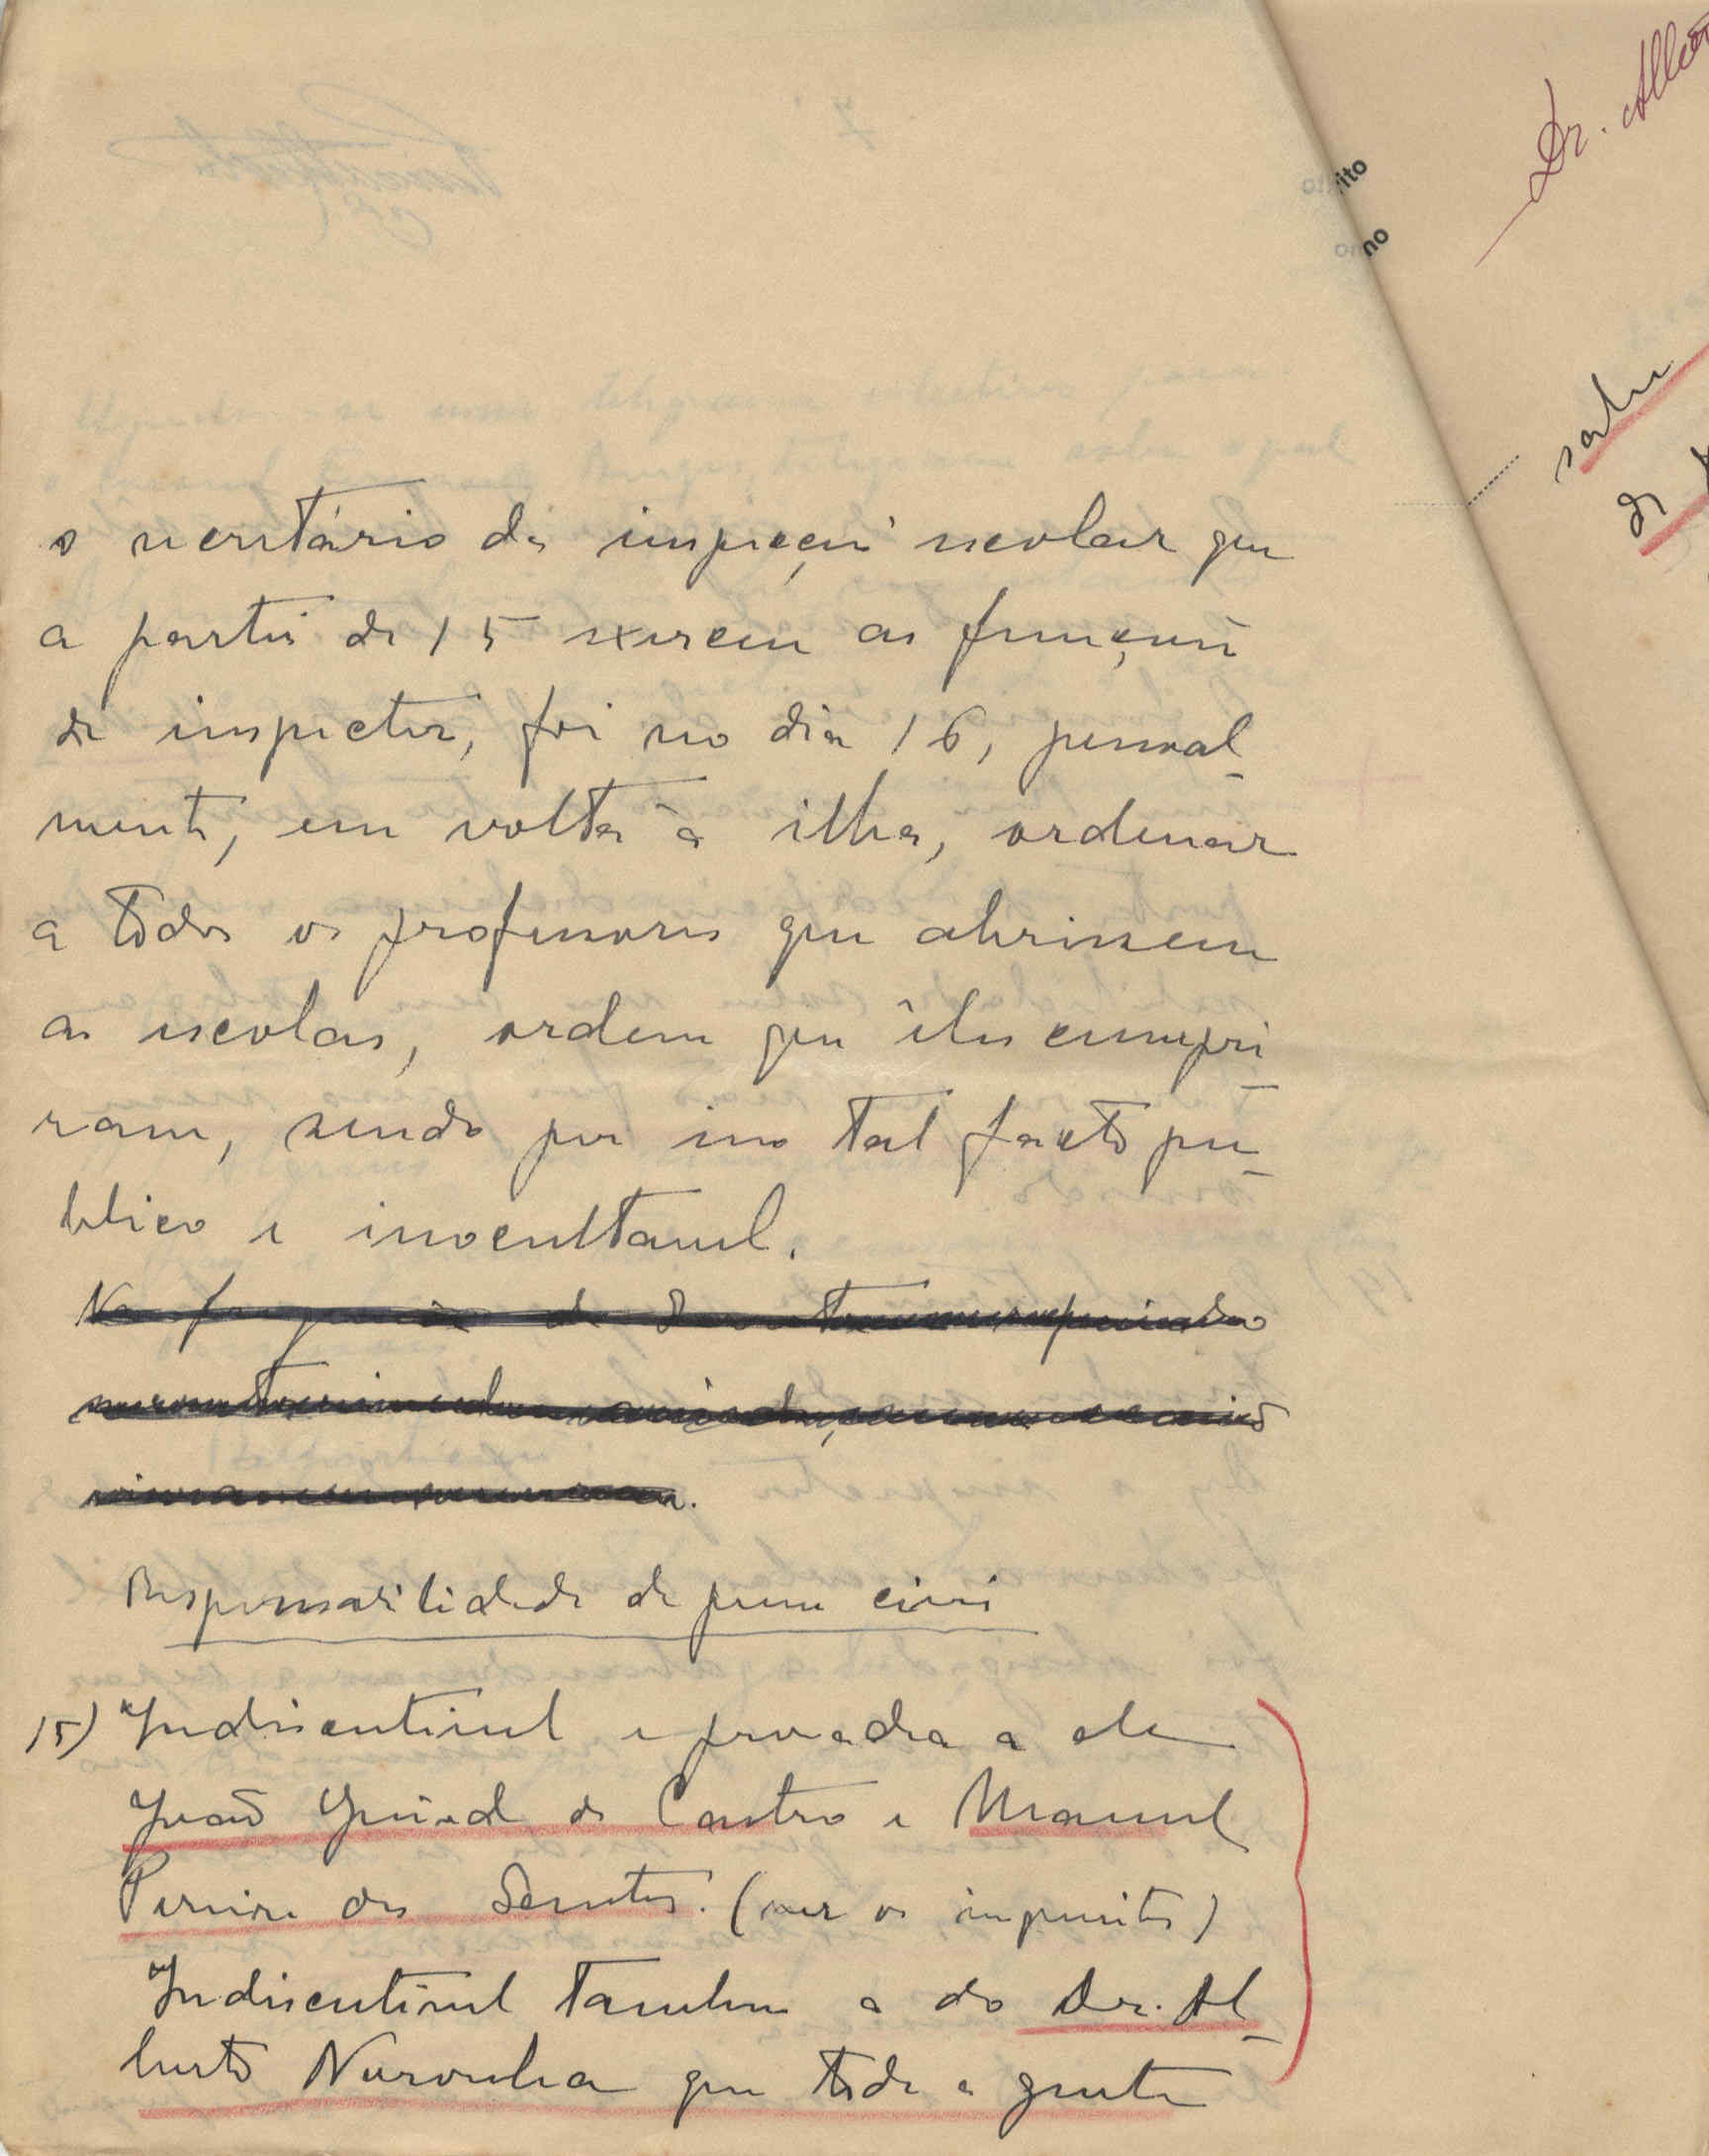 o secretário da inspecção escolar que
a partir de 15 exerceu as funções
de inspector, foi no dia 16, pessoal-
mente, em volta à ilha, ordenar
a todos os professores que abrissem
as escolas, ordem que êles cumpri-
ram, sendo por isso tal facto pu-
blico e inocultavel.
Responsabilidade de pessoas civis
15) Indiscutivel e provada a de
João de Castro e Manuel
Pereira dos Santos. (ver os)
Indiscutivel tambem a do Dr. Al-
berto Noronha que toda a gente
Dr.
sabe
de
ito
no